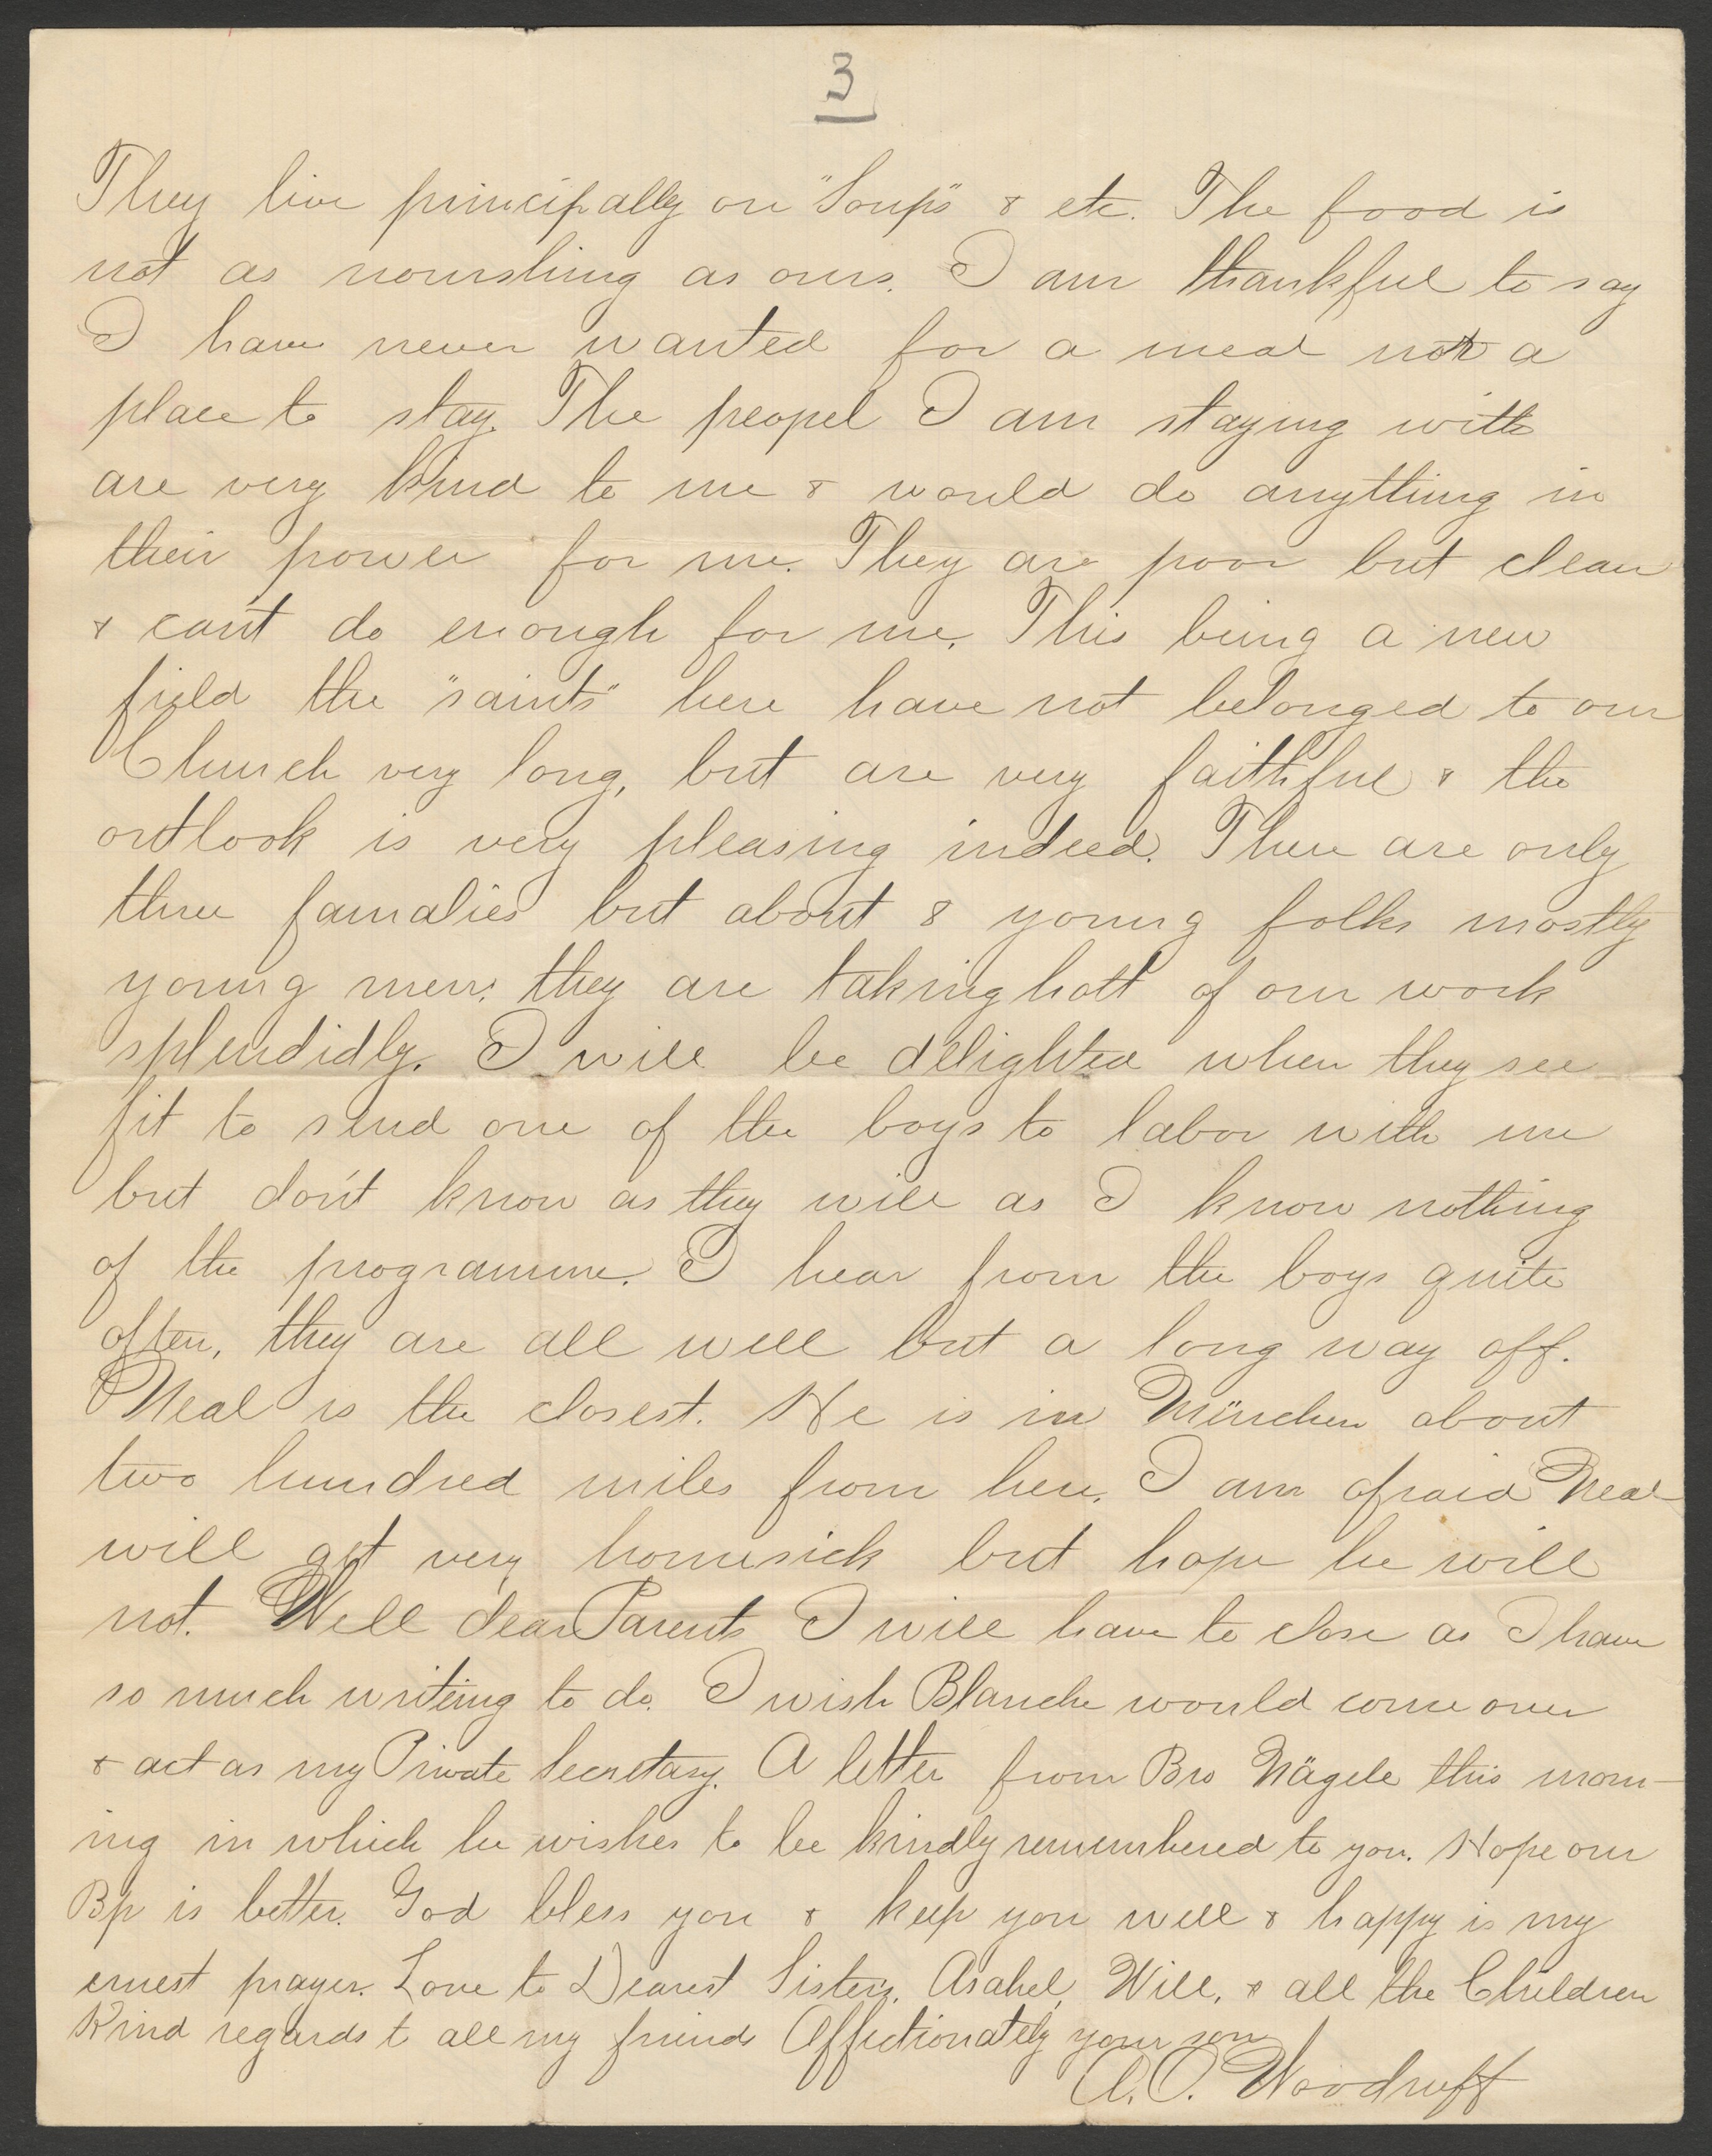 3
They live principally on "Soups" & etc. The food is
not as nourshing as ours. I am thankful to say
I have never wanted for a meal nor a
place to stay. The peopel I am staying with
are very kind to me & would do anything in
their power for me. They are poor but clean
& can't do enough for me. This being a new
field the "saints" here have not belonged to our
Church very long, but are very faithful & the
outlook is very pleasing indeed. There are only
three famalies but about 8 young folks mostly
young men; they are taking holt of our work
splendidly. I will be delighted when they see
fit to send one of the boys to labor with me
but don't know as they will as I know nothing
of the programme. I hear from the boys quite
often, they are all well but a long way off.
Neal is the closest. He is in München about
two hundred miles from here. I am afraid Neal
will get very homesick but hope he will
not. Well dear Parents I will have to close as I have
so much writing to do. I wish Blanche would come over
& act as my Private Secretary. A letter from Bro Nägele this morn-
ing in which he wishes to be kindly remembered to you. Hope our
Bp is better. God bless you & keep you well & happy is my
ernest prayer. Love to Dearest Sisters, Asahel, Will, & all the Children
Kind regards t all my friends Affectionately your son
A. O. Woodruff